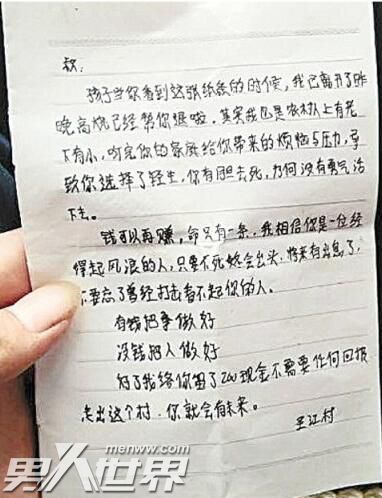 叔:
孩子当你看到这张纸条的时候,我已离开了昨
晚高烧已经帮你退啦,其实我也是农村人上有老
下有小,听完你的家庭给你带来的烦恼与压力,导
致你选择了轻生,你有胆去死,为何没有勇气活
下去。
钱可以再赚,命只有一条,我相信你是一位经
得起风浪的人,只要不死终会出头,将来有出息了,
不要忘了曾经打击看不起你的人。
有钱把事做好
没钱把人做好
对了我给你留了200现金不需要任何回报
走出这个村,你就会有未来。
王江村
男人世界
menww.com